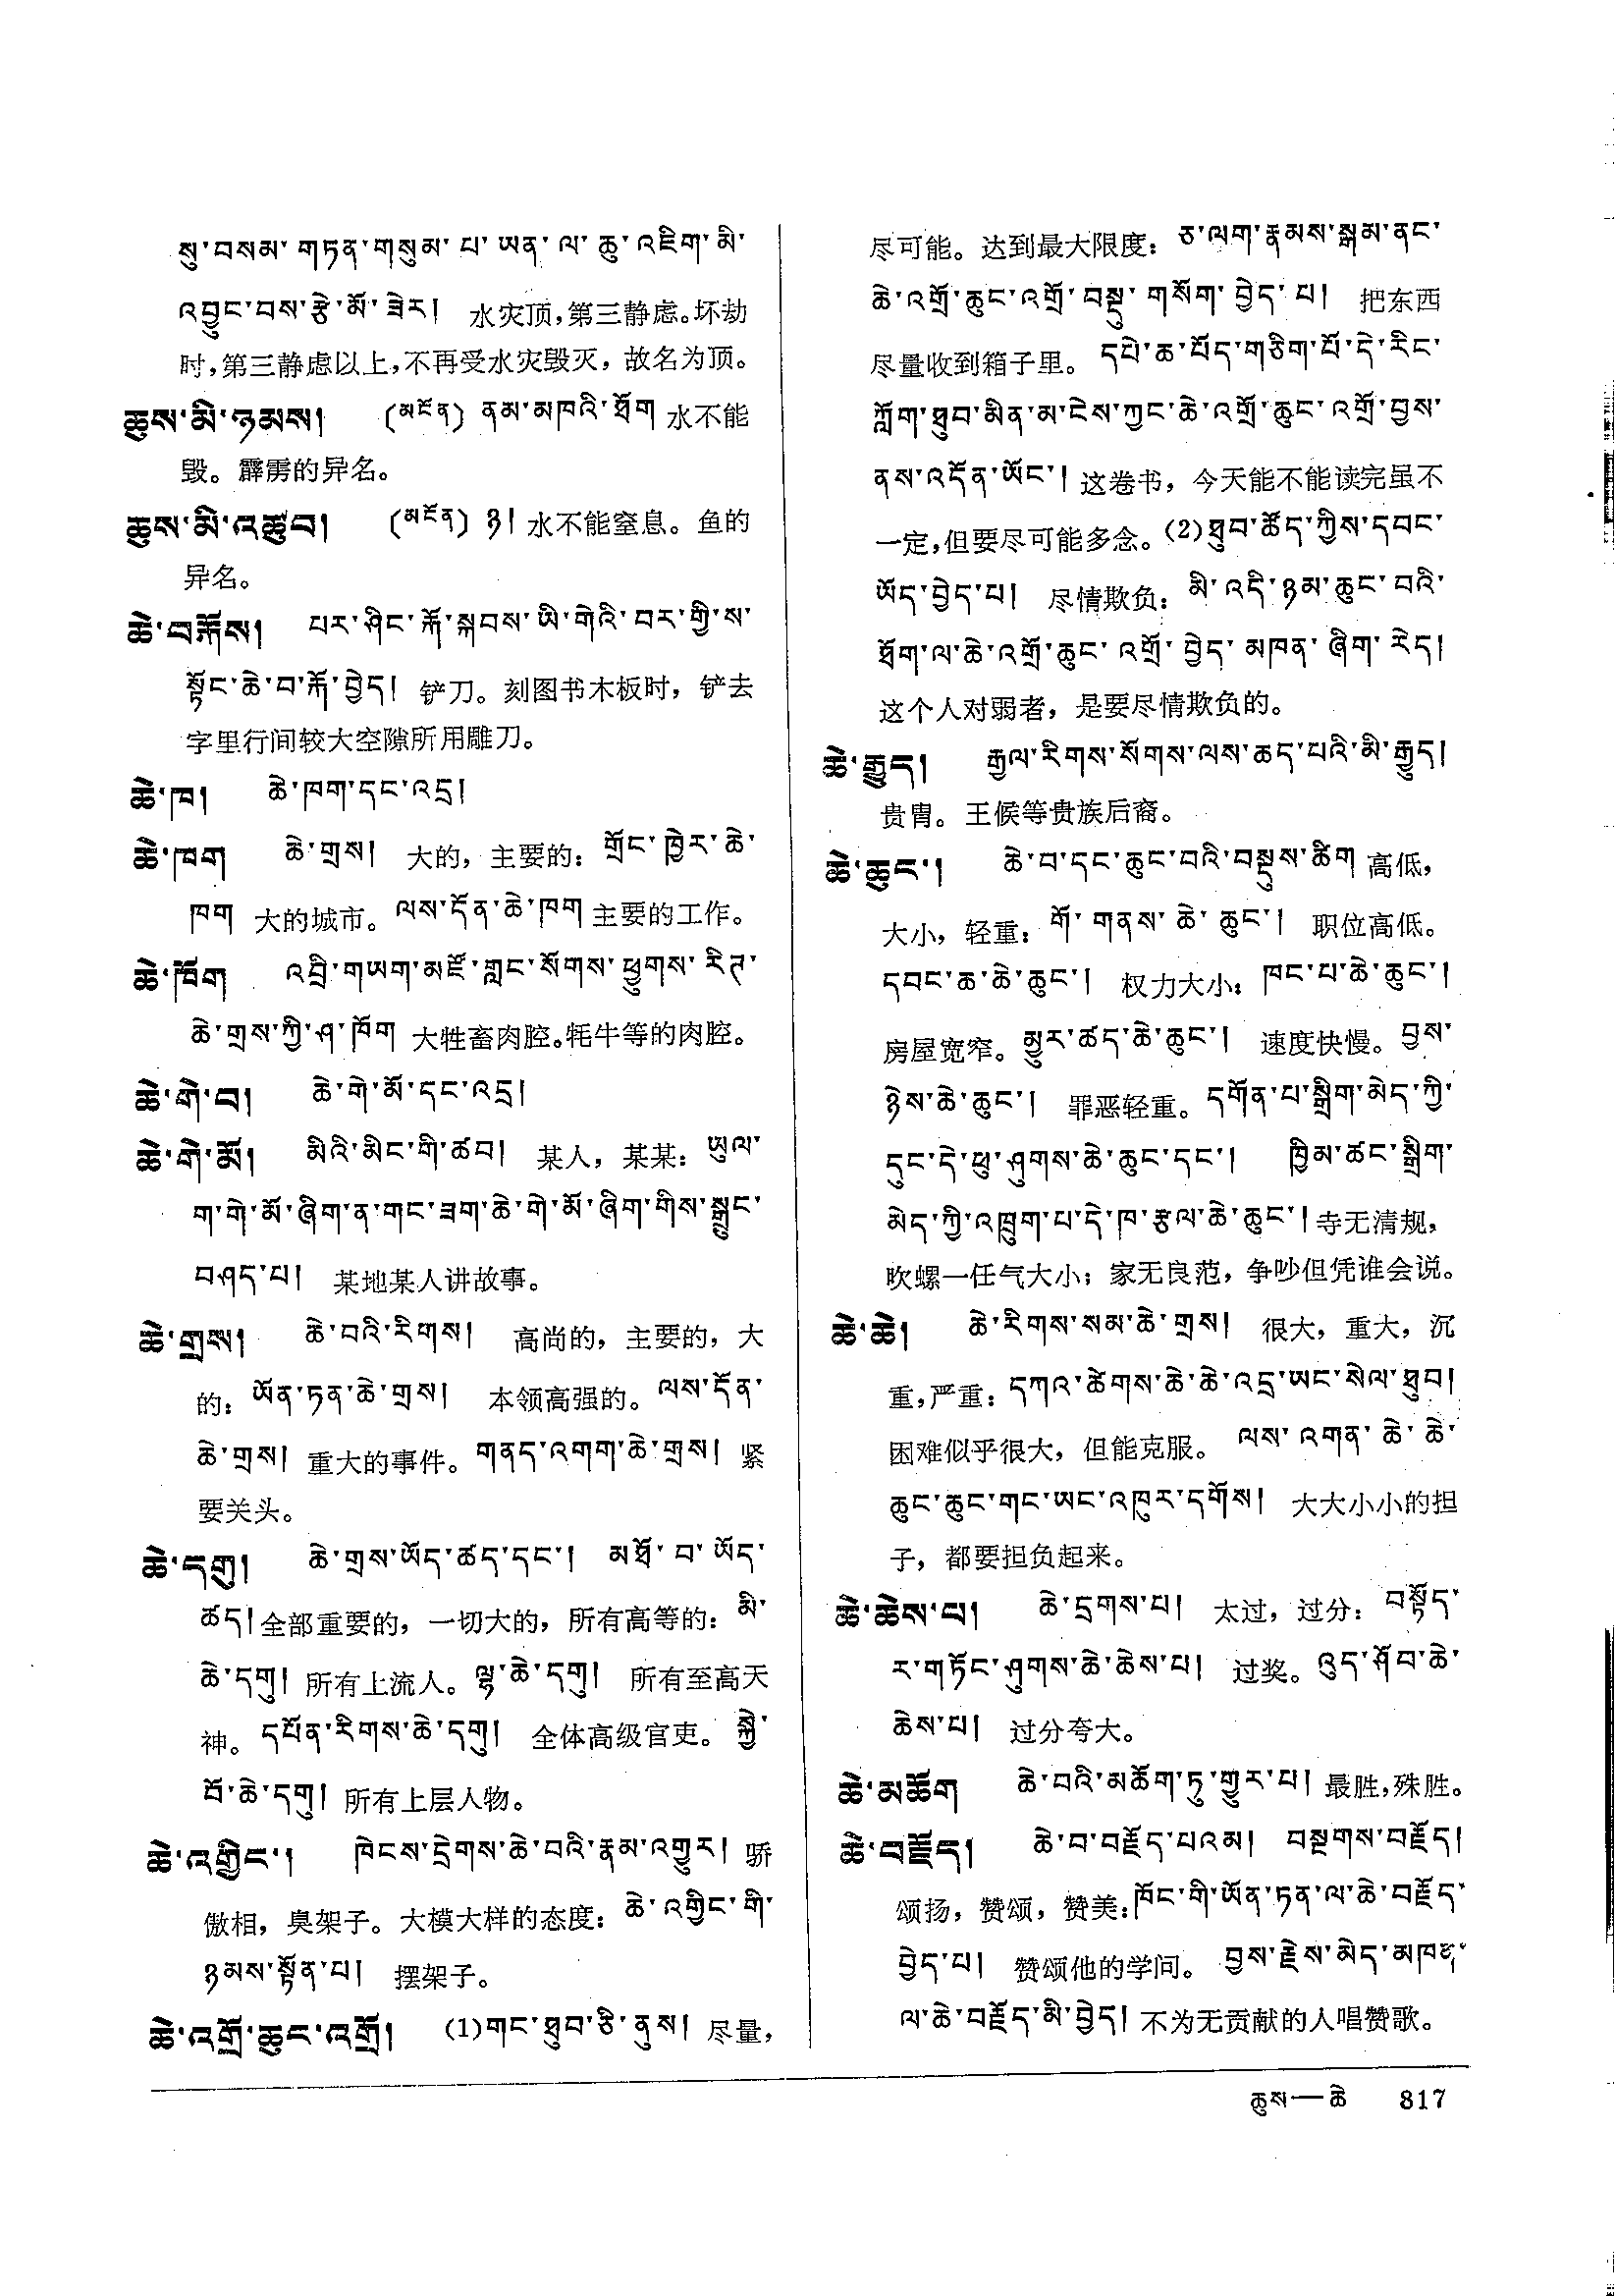 སུ་བསམ་གཏན་གསུམ་པ་ཡན་ལ་ཆུ་འཇིག་མི་
འབྱུང་བས་རྩེ་མོ་ཟེར། 水灾顶，第三静虑。坏劫
时，第三静虑以上，不再受水灾毁灭，故名为顶。
ཆུས་མི་ཉམས། (མངོན) ནམ་མཁའི་ཐོག 水不能
毁。霹雳的异名。
ཆུས་མི་འཚུབ། (མངོན) ཉ། 水不能窒息。鱼的
异名。
ཆེ་བརྐོས། པར་ཤིང་རྐོ་སྐབས་ཡི་གེའི་བར་གྱི་ས་
སྟོང་ཆེ་བ་རྐོ་བྱེད། 铲刀。刻图书木板时，铲去
字里行间较大空隙所用雕刀。
ཆེ་ཁ། ཆེ་ཁག་དང་འདྲ།
ཆེ་ཁག ཆེ་གྲས། 大的，主要的：གྲོང་ཁྱེར་ཆེ་
ཁག 大的城市。ལས་དོན་ཆེ་ཁག 主要的工作。
ཆེ་ཁོག འབྲི་གཡག་མཛོ་གླང་སོགས་ཕྱུགས་རིཊ་
ཆེ་གྲས་ཀྱི་ཤ་ཁོག 大牲畜肉腔。牦牛等的肉腔。
ཆེ་གེ་བ། ཆེ་གེ་མོ་དང་འདྲ།
ཆེ་གེ་མོ། མིའི་མིང་གི་ཚབ། 某人，某某：ཡུལ་
ག་གེ་མོ་ཞིག་ན་གང་ཟག་ཆེ་གེ་མོ་ཞིག་གིས་སྒྲུང་
བཤད་པ། 某地某人讲故事。
ཆེ་གྲས། ཆེ་བའི་རིགས། 高尚的，主要的，大
的：ཡོན་ཏན་ཆེ་གྲས། 本领高强的。ལས་དོན་
ཆེ་གྲས། 重大的事件。གནད་འགག་ཆེ་གྲས། 紧
要关头。
ཆེ་དགུ། ཆེ་གྲས་ཡོད་ཚད་དང་། མཐོ་བ་ཡོད་
ཚད། 全部重要的，一切大的，所有高等的：མི་
ཆེ་དགུ། 所有上流人。ལྷ་ཆེ་དགུ། 所有至高天
神。དཔོན་རིགས་ཆེ་དགུ། 全体高级官吏。སྐྱེ་
བོ་ཆེ་དགུ། 所有上层人物。
ཆེ་འགྱིང་། ཁེངས་དྲེགས་ཆེ་བའི་རྣམ་འགྱུར། 骄
傲相，臭架子。大模大样的态度：ཆེ་འགྱིང་གི་
ཉམས་སྟོན་པ། 摆架子。
ཆེ་འགྲོ་ཆུང་འགྲོ། (1)གང་ཐུབ་ཅི་ནུས། 尽量，
尽可能。达到最大限度：ཅ་ལག་རྣམས་སྒམ་ནང་
ཆེ་འགྲོ་ཆུང་འགྲོ་བསྡུ་གསོག་བྱེད་པ། 把东西
尽量收到箱子里。དཔེ་ཆ་པོད་གཅིག་པོ་དེ་རིང་
ཀློག་ཐུབ་མིན་མ་ངེས་ཀྱང་ཆེ་འགྲོ་ཆུང་འགྲོ་བྱས་
ནས་འདོན་ཡོང་། 这卷书，今天能不能读完虽不
一定，但要尽可能多念。(2)ཐུབ་ཚོད་ཀྱིས་དབང་
ཡོད་བྱེད་པ། 尽情欺负：མི་འདི་ཉམ་ཆུང་བའི་
ཐོག་ལ་ཆེ་འགྲོ་ཆུང་འགྲོ་བྱེད་མཁན་ཞིག་རེད།
这个人对弱者，是要尽情欺负的。
ཆེ་རྒྱུད། རྒྱལ་རིགས་སོགས་ལས་ཆད་པའི་མི་རྒྱུད།
贵胄。王候等贵族后裔。
ཆེ་ཆུང་། ཆེ་བ་དང་ཆུང་བའི་བསྡུས་ཚིག 高低，
大小，轻重：གོ་གནས་ཆེ་ཆུང་། 职位高低。
དབང་ཆ་ཆེ་ཆུང་། 权力大小：ཁང་པ་ཆེ་ཆུང་།
房屋宽窄。མྱུར་ཚད་ཆེ་ཆུང་། 速度快慢。བྱས་
ཉེས་ཆེ་ཆུང་། 罪恶轻重。དགོན་པ་སྒྲིག་མེད་ཀྱི་
དུང་དེ་ཕུ་ཤུགས་ཆེ་ཆུང་དང་། ཁྱིམ་ཚང་སྒྲིག་
མེད་ཀྱི་འཁྲུག་པ་དེ་ཁ་རྩལ་ཆེ་ཆུང་། 寺无清规，
吹螺一任气大小；家无良范，争吵但凭谁会说。
ཆེ་ཆེ། ཆེ་རིགས་སམ་ཆེ་གྲས། 很大，重大，沉
重，严重：དཀའ་ཚེགས་ཆེ་ཆེ་འདྲ་ཡང་སེལ་ཐུབ།
困难似乎很大，但能克服。ལས་འགན་ཆེ་ཆེ་
ཆུང་ཆུང་གང་ཡང་འཁུར་དགོས། 大大小小的担
子，都要担负起来。
ཆེ་ཆེས་པ། ཆེ་དྲགས་པ། 太过，过分：བསྟོད་
ར་གཏོང་ཤུགས་ཆེ་ཆེས་པ། 过奖。འུད་ཤོབ་ཆེ་
ཆེས་པ། 过分夸大。
ཆེ་མཆོག ཆེ་བའི་མཆོག་ཏུ་གྱུར་པ། 最胜，殊胜。
ཆེ་བརྗོད། ཆེ་བ་བརྗོད་པའམ། བསྔགས་བརྗོད།
颂扬，赞颂，赞美：ཁོང་གི་ཡོན་ཏན་ལ་ཆེ་བརྗོད་
བྱེད་པ། 赞颂他的学问。བྱས་རྗེས་མེད་མཁན་
ལ་ཆེ་བརྗོད་མི་བྱེད། 不为无贡献的人唱赞歌。
ཆུས—ཆེ 817